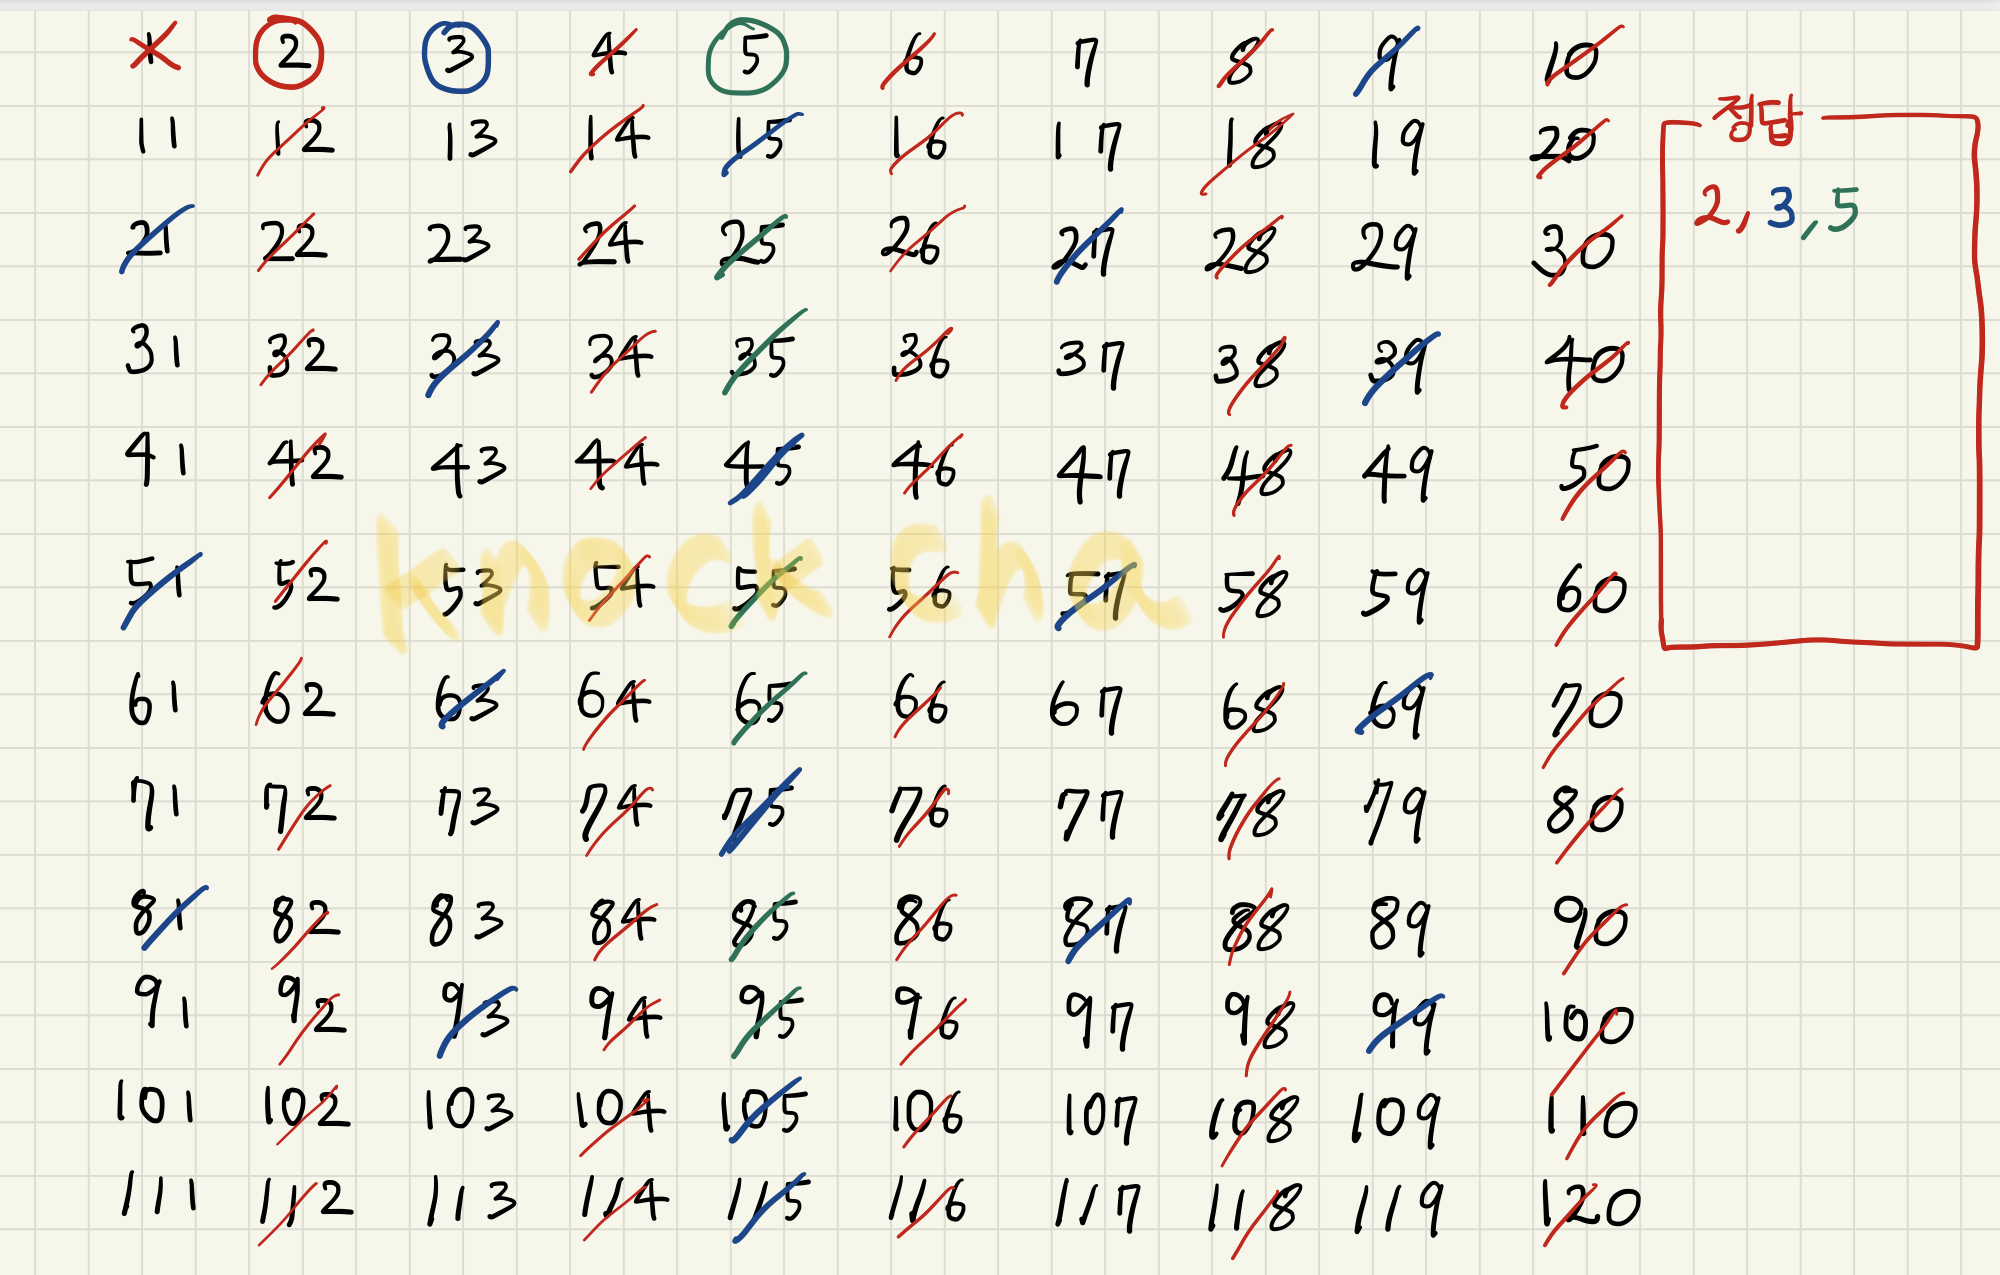 1 2 3 4 5 6 7 8 9 10
11 12 13 14 15 16 17 18 19 20
정답
2, 3, 5
21 22 23 24 25 26 27 28 29 30
31 32 33 34 35 36 37 38 39 40
41 42 43 44 45 46 47 48 49 50
knock cha
51 52 53 54 55 56 57 58 59 60
61 62 63 64 65 66 67 68 69 70
71 72 73 74 75 76 77 78 79 80
81 82 83 84 85 86 87 88 89 90
91 92 93 94 95 96 97 98 99 100
101 102 103 104 105 106 107 108 109 110
111 112 113 114 115 116 117 118 119 120